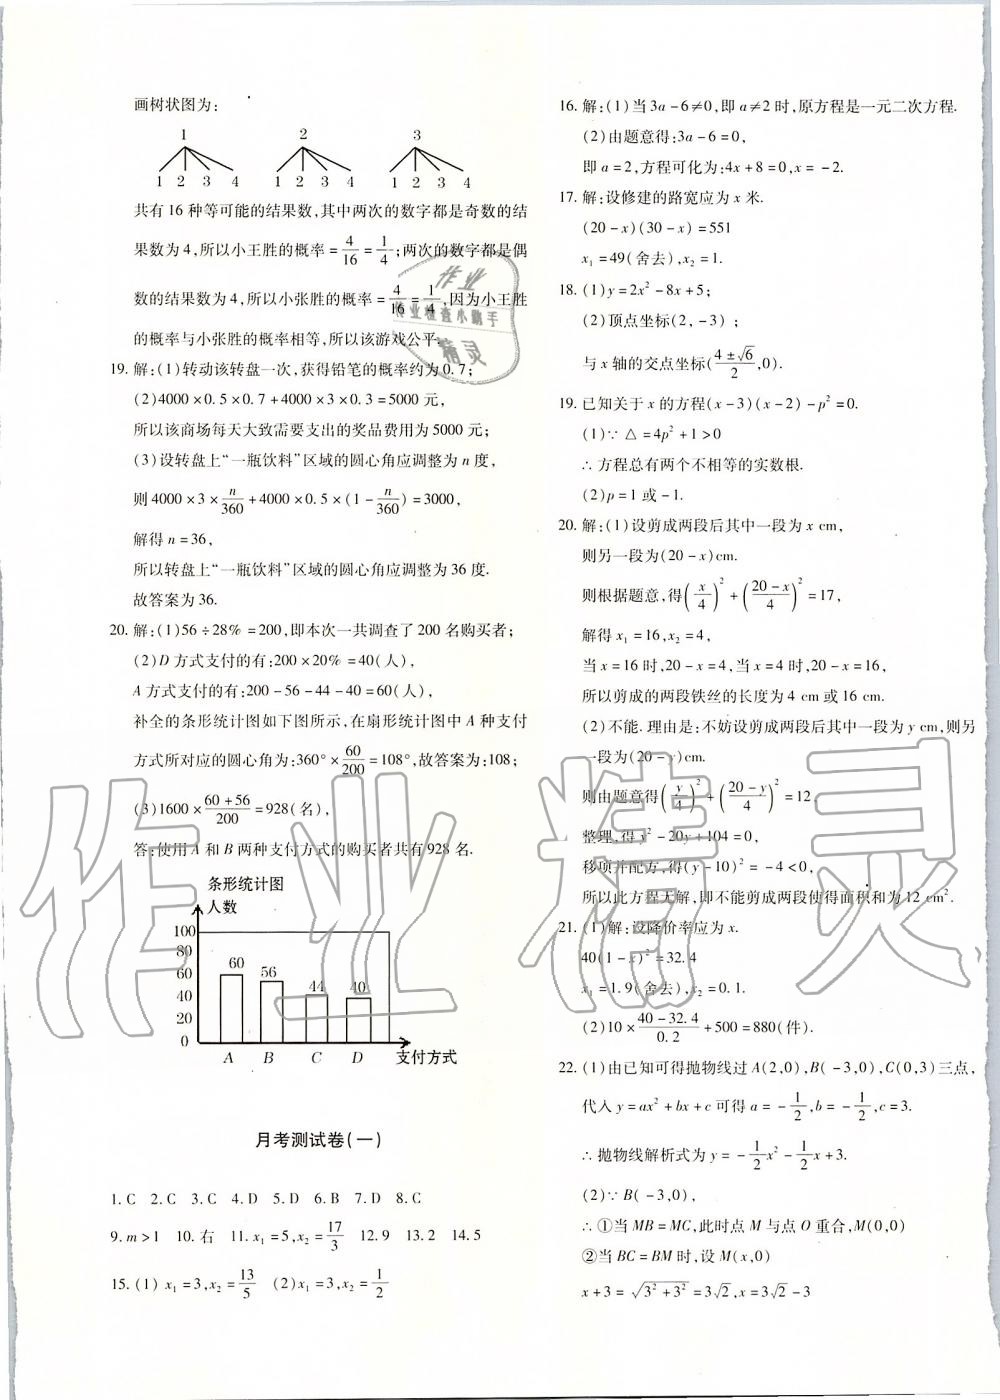 画树状图为:
1 2 3
1 2 3 4 1 2 3 4 1 2 3 4
共有16种等可能的结果数,其中两次的数字都是奇数的结
果数为4,所以小王胜的概率=4/16=1/4;两次的数字都是偶
数的结果数为4,所以小张胜的概率=4/16=1/4,因为小王胜
的概率与小张胜的概率相等,所以该游戏公平.
19.解:(1)转动该转盘一次,获得铅笔的概率约为0.7;
(2)4000×0.5×0.7+4000×3×0.3=5000元,
所以该商场每天大致需要支出的奖品费用为5000元;
(3)设转盘上“一瓶饮料”区域的圆心角应调整为n度,
则4000×3×n/360+4000×0.5×(1-n/360)=3000,
解得n=36,
所以转盘上“一瓶饮料”区域的圆心角应调整为36度.
故答案为36.
20.解:(1)56÷28%=200,即本次一共调查了200名购买者;
(2)D方式支付的有:200×20%=40(人),
A方式支付的有:200-56-44-40=60(人),
补全的条形统计图如下图所示,在扇形统计图中A种支付
方式所对应的圆心角为:360°×60/200=108°,故答案为:108;
(3)1600×(60+56)/200=928(名),
答:使用A和B两种支付方式的购买者共有928名.
条形统计图
人数
100
80
60
40
20
0
60 56 44 40
A B C D 支付方式
月考测试卷(一)
1.C 2.C 3.C 4.D 5.D 6.B 7.D 8.C
9.m>1 10.右 11.x₁=5,x₂=17/3 12.9 13.2 14.5
15.(1) x₁=3,x₂=13/5 (2)x₁=3,x₂=1/2
16.解:(1)当3a-6≠0,即a≠2时,原方程是一元二次方程.
(2)由题意得:3a-6=0,
即a=2,方程可化为:4x+8=0,x=-2.
17.解:设修建的路宽应为x米.
(20-x)(30-x)=551
x₁=49(舍去),x₂=1.
18.(1)y=2x²-8x+5;
(2)顶点坐标(2,-3);
与x轴的交点坐标((4±√6)/2,0).
19.已知关于x的方程(x-3)(x-2)-p²=0.
(1)∵△=4p²+1>0
∴方程总有两个不相等的实数根.
(2)p=1或-1.
20.解:(1)设剪成两段后其中一段为x cm,
则另一段为(20-x)cm.
则根据题意,得(x/4)²+((20-x)/4)²=17,
解得x₁=16,x₂=4,
当x=16时,20-x=4,当x=4时,20-x=16,
所以剪成的两段铁丝的长度为4 cm或16 cm.
(2)不能.理由是:不妨设剪成两段后其中一段为y cm,则另
一段为(20-y)cm.
则由题意得(y/4)²+((20-y)/4)²=12,
整理,得y²-20y+104=0,
移项并配方,得(y-10)²=-4<0,
所以此方程无解,即不能剪成两段使得面积和为12 cm².
21.(1)解:设降价率应为x.
40(1-x)²=32.4
x₁=1.9(舍去),x₂=0.1.
(2)10×(40-32.4)/0.2+500=880(件).
22.(1)由已知可得抛物线过A(2,0),B(-3,0),C(0,3)三点,
代人y=ax²+bx+c可得a=-1/2,b=-1/2,c=3.
∴抛物线解析式为y=-1/2x²-1/2x+3.
(2)∵B(-3,0),
∴①当MB=MC,此时点M与点O重合,M(0,0)
②当BC=BM时,设M(x,0)
x+3=√(3²+3²)=3√2,x=3√2-3
作业
作业检查小助手
精灵
作业精灵